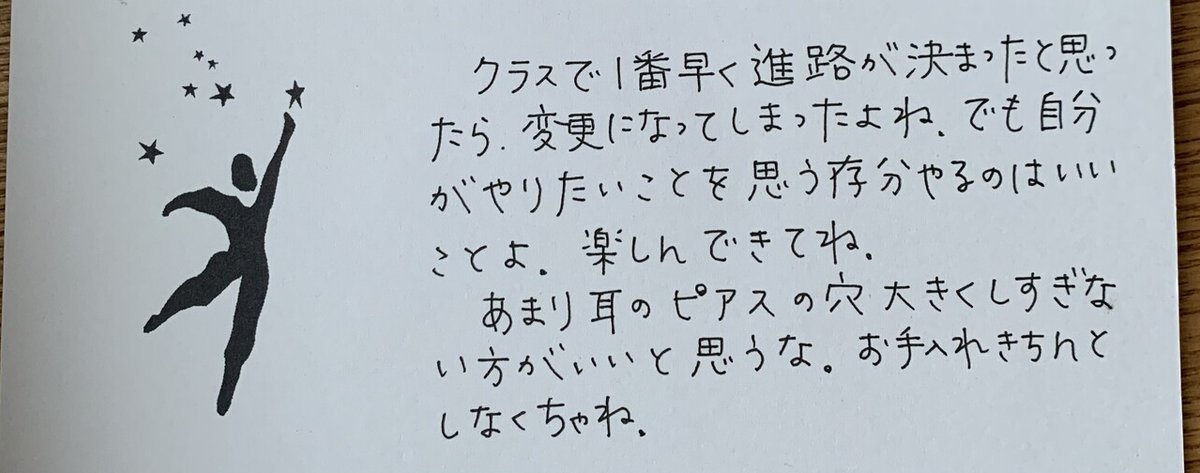 クラスで1番早く進路が決まったと思っ
たら、変更になってしまったよね、でも自分
がやりたいことを思う存分やるのはいい
ことよ。楽しんできてね。
あまり耳のピアスの穴大きくしすぎな
い方がいいと思うな。お手入れきちんと
しなくちゃね。